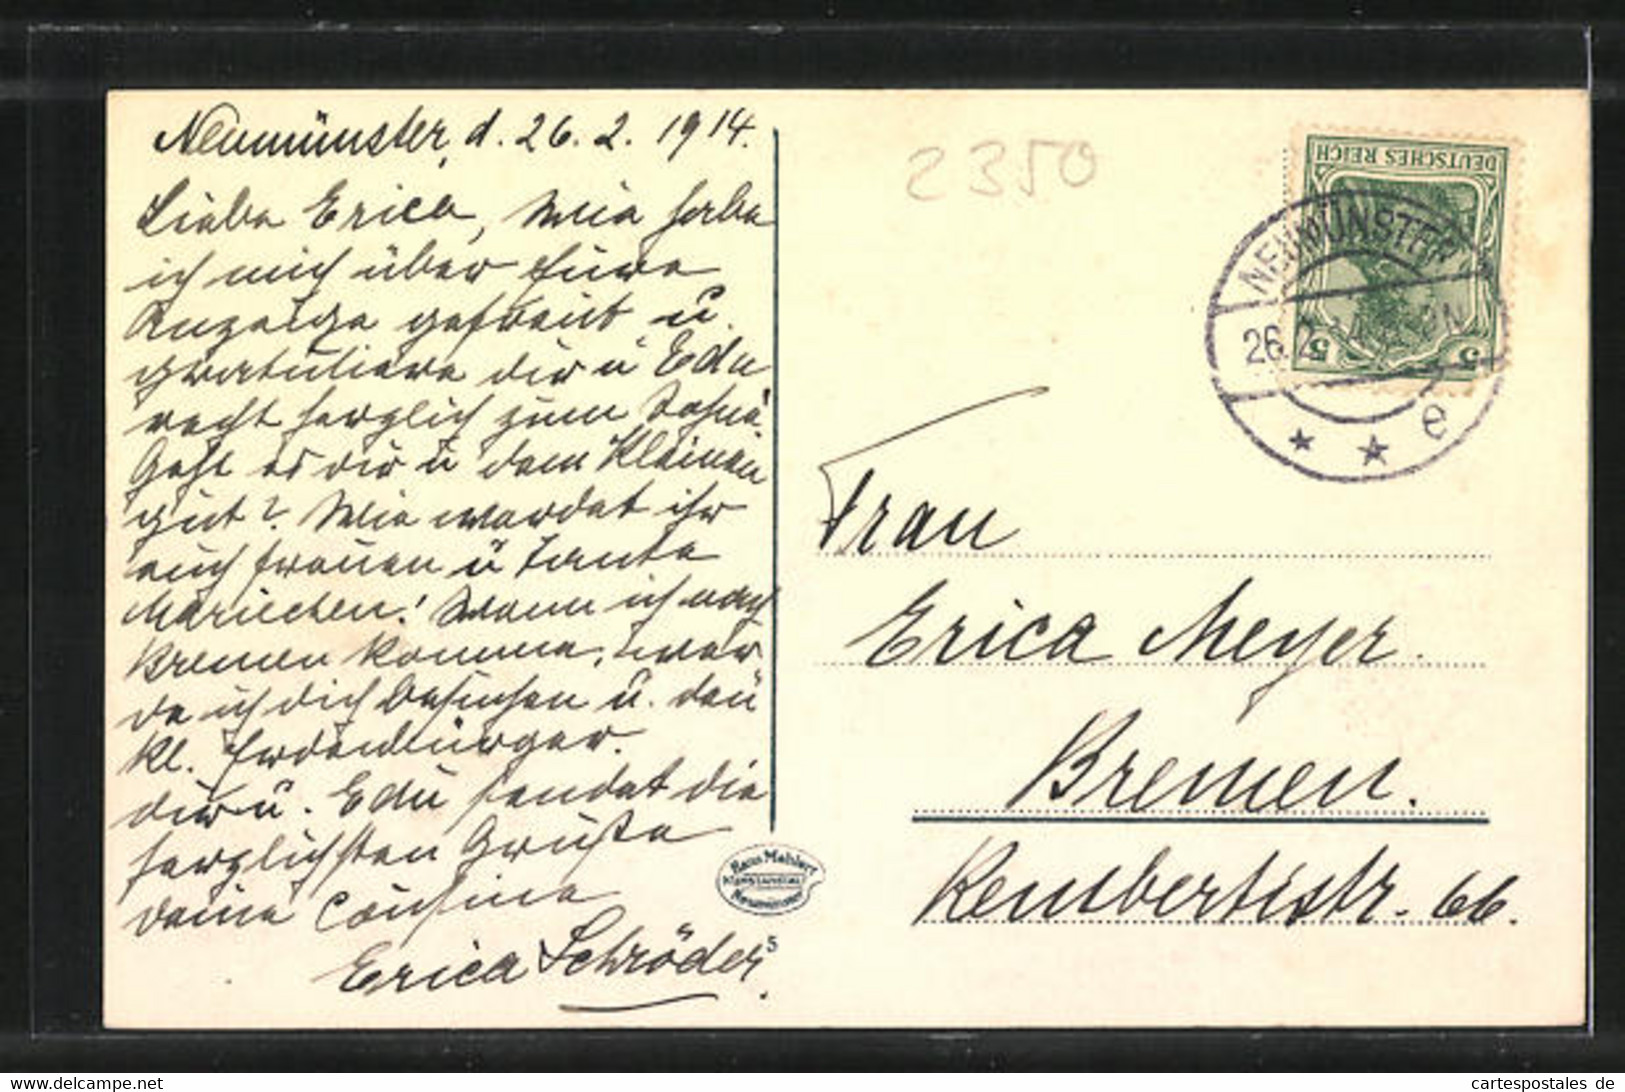 Neumünster, d. 26. 2. 1914.
Liebe Erica, Wie habe
ich mich über Eure
Anzeige gefreut u.
gratuliere dir u Edu
recht herzlich zum Sohne.
Geht es dir u dem Kleinen
gut? Wie werdet ihr
euch freuen u Tante
Mariechen! Wenn ich nach
Bremen komme, wer
de ich dich besuchen u. den
kl. Erdenbürger.
dir u. Edu sendet die
herzlichsten Grüße
deine Cousine
Erica Schröder.
2350
DEUTSCHES REICH
5 5
NEUMÜNSTER
26. 2.
* * e
Frau
Erica Meyer.
Bremen.
Rembertistr. 66.
Hans Mahler
Kunstanstalt
Neumünster
5
cartespostales de